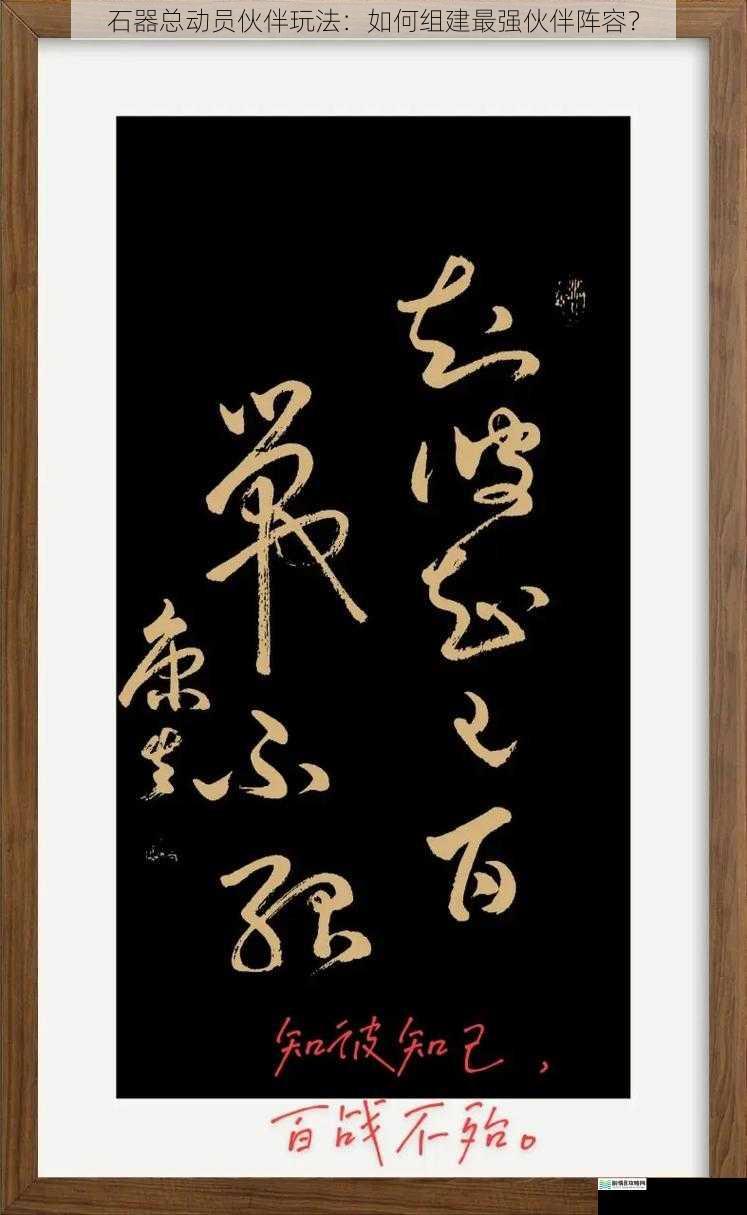 石器总动员伙伴玩法：如何组建最强伙伴阵容？
知彼知己百
战不殆
康生
知彼知己，
百战不殆。